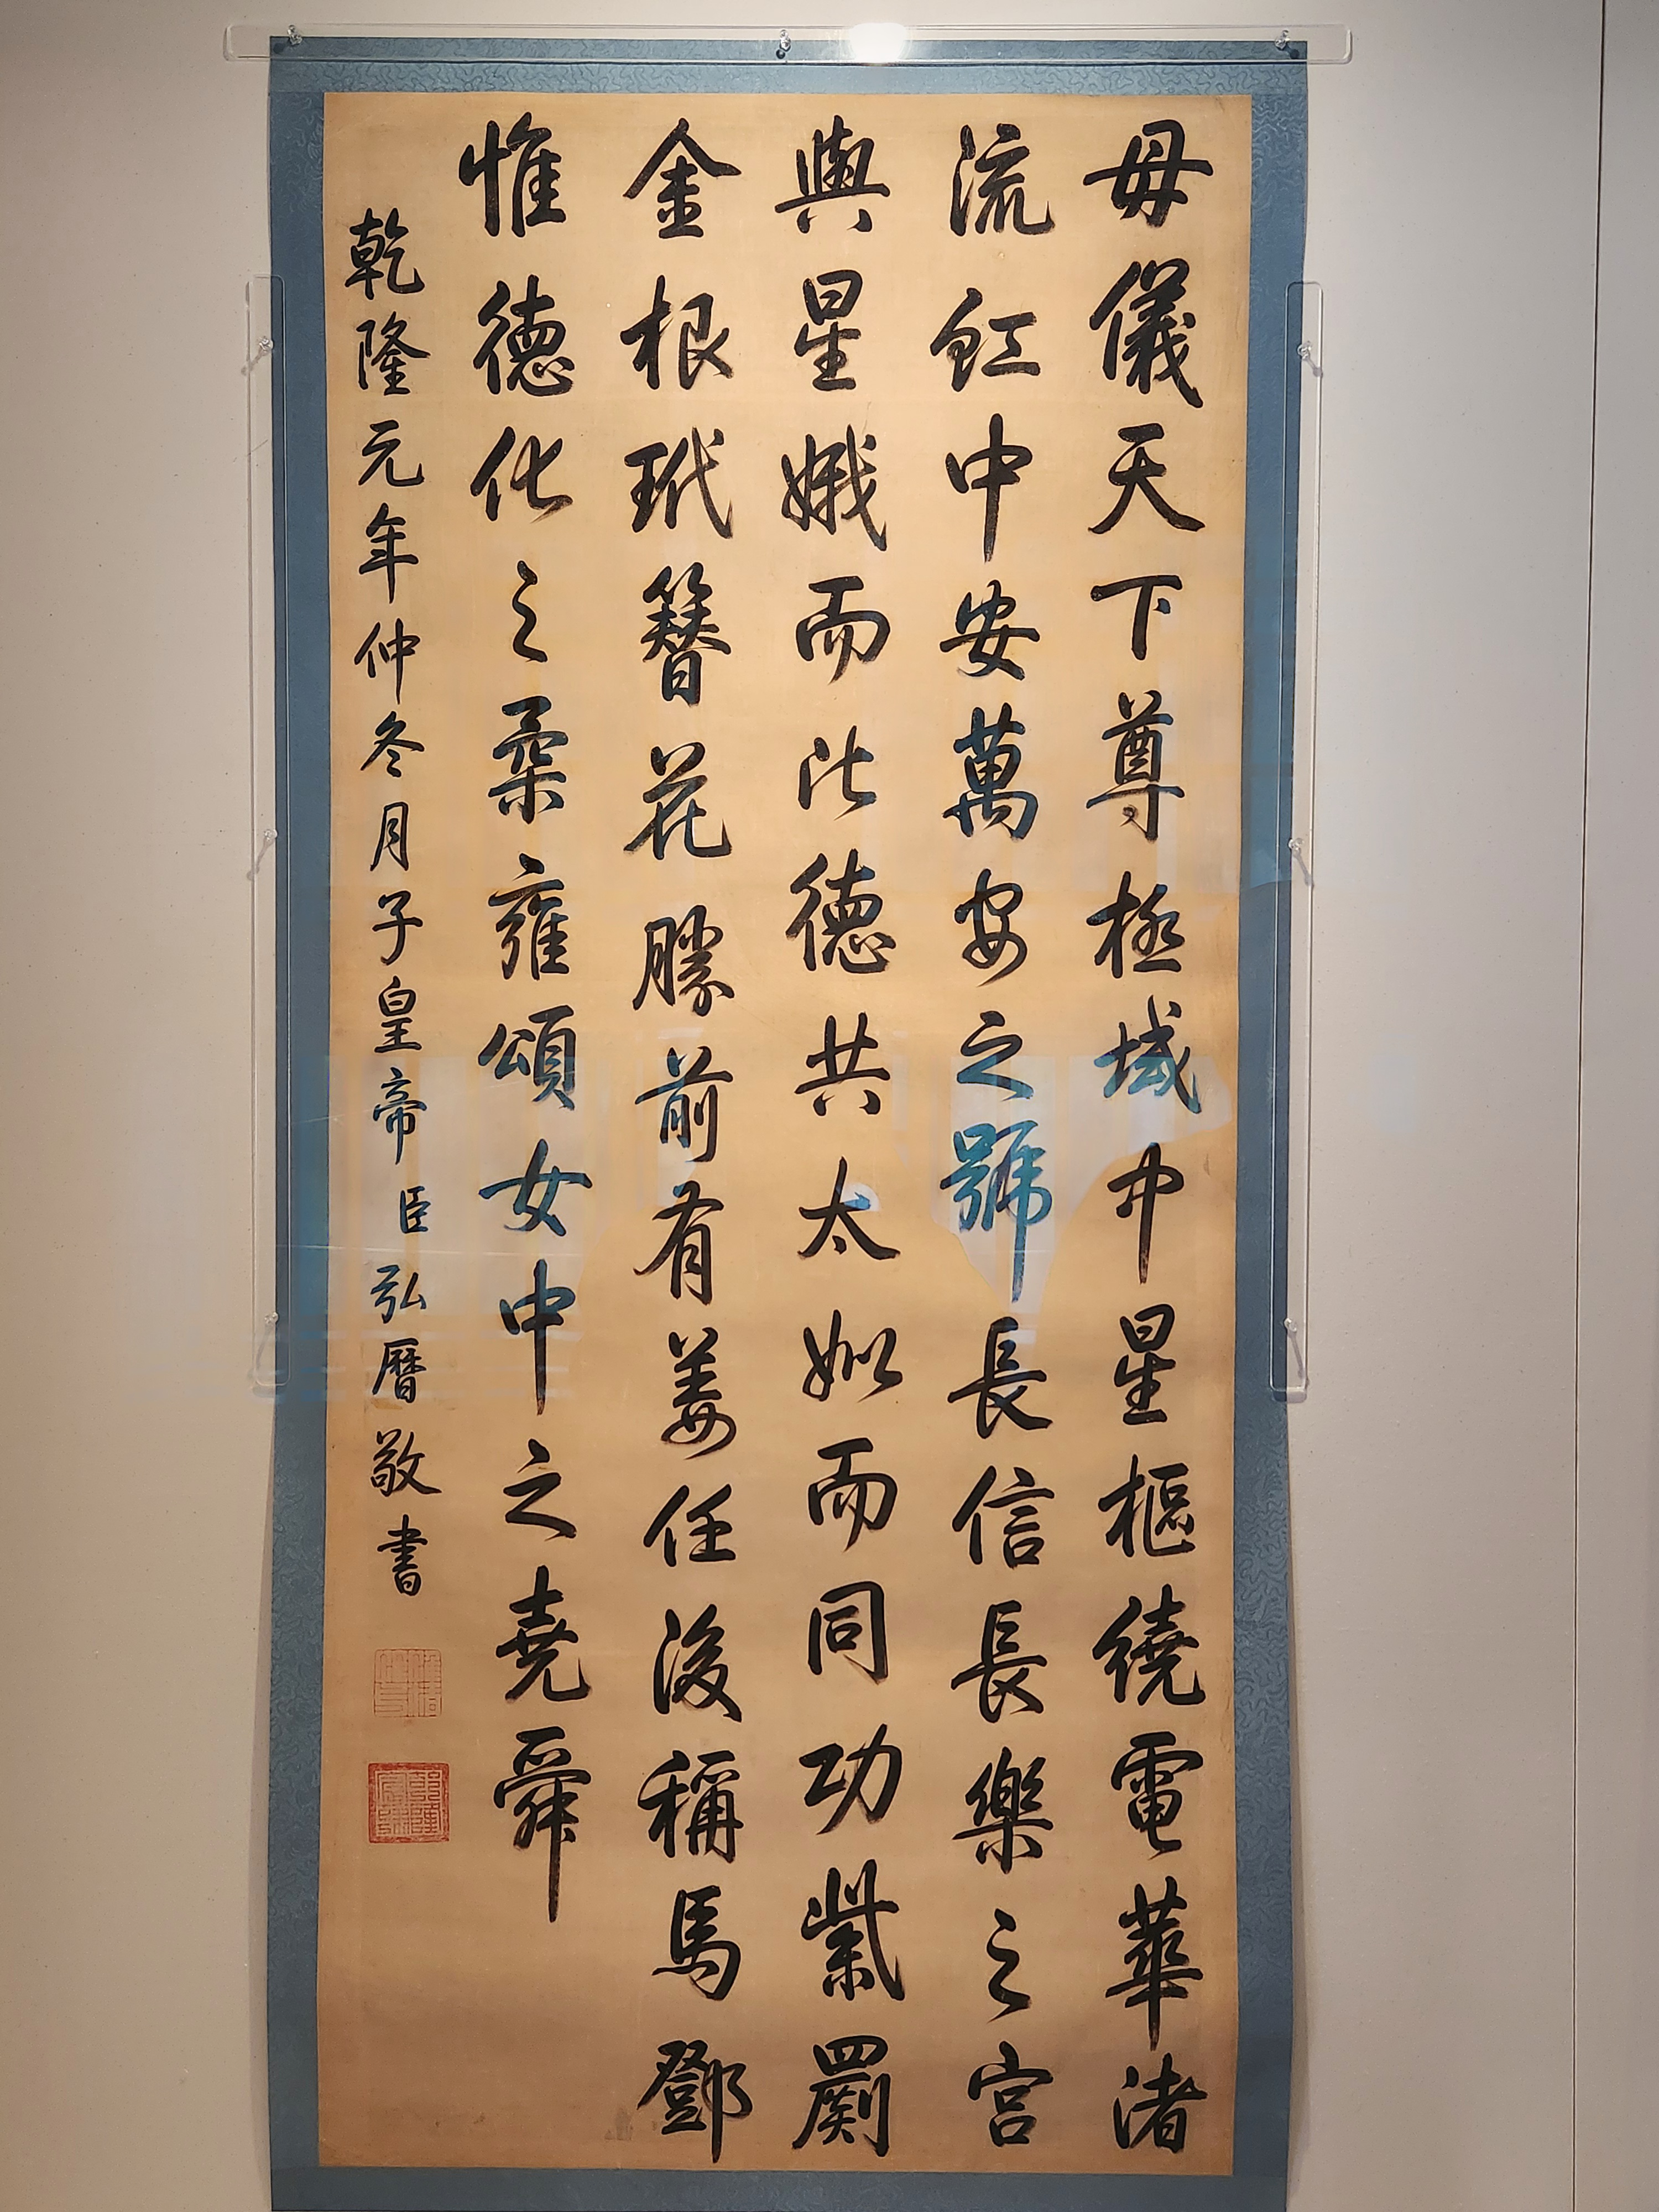 母儀天下尊極域中星樞繞電華渚
流虹中安萬安之號長信長樂之宮
與星娥而比德共太姒而同功紫罽
金根玳簪花勝前有姜任後稱馬鄧
惟德化之柔雍頌女中之堯舜
乾隆元年仲冬月子皇帝臣弘曆敬書
乾隆宸翰